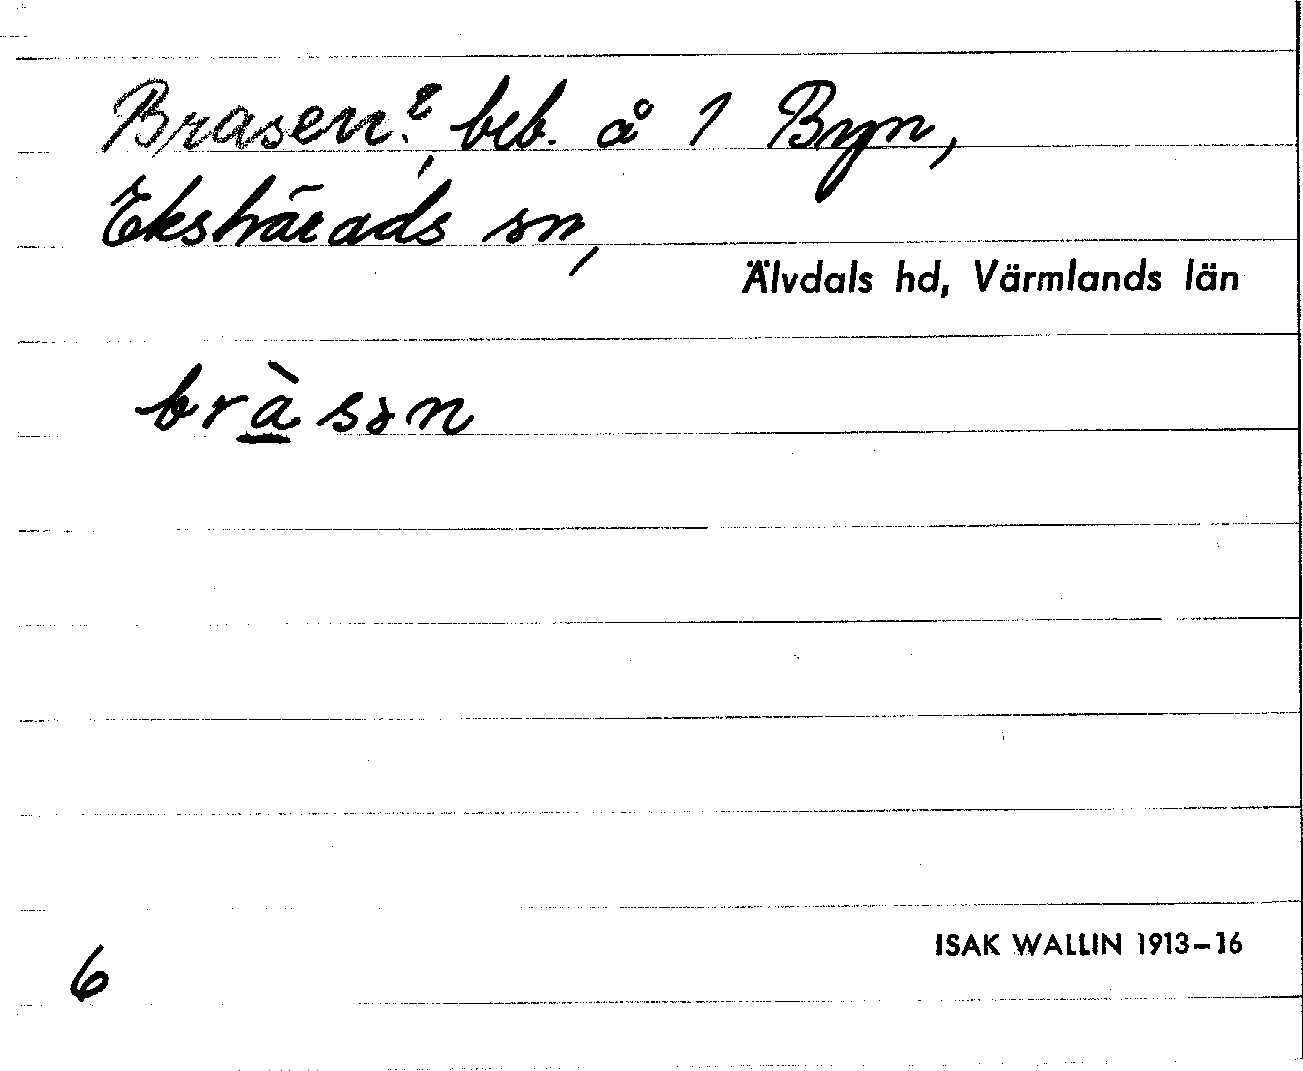 Brasen?, beb. å 1 Byn,
Ekshärads sn,
Älvdals hd, Värmlands län
bràsən
ISAK WALLIN 1913–16
6